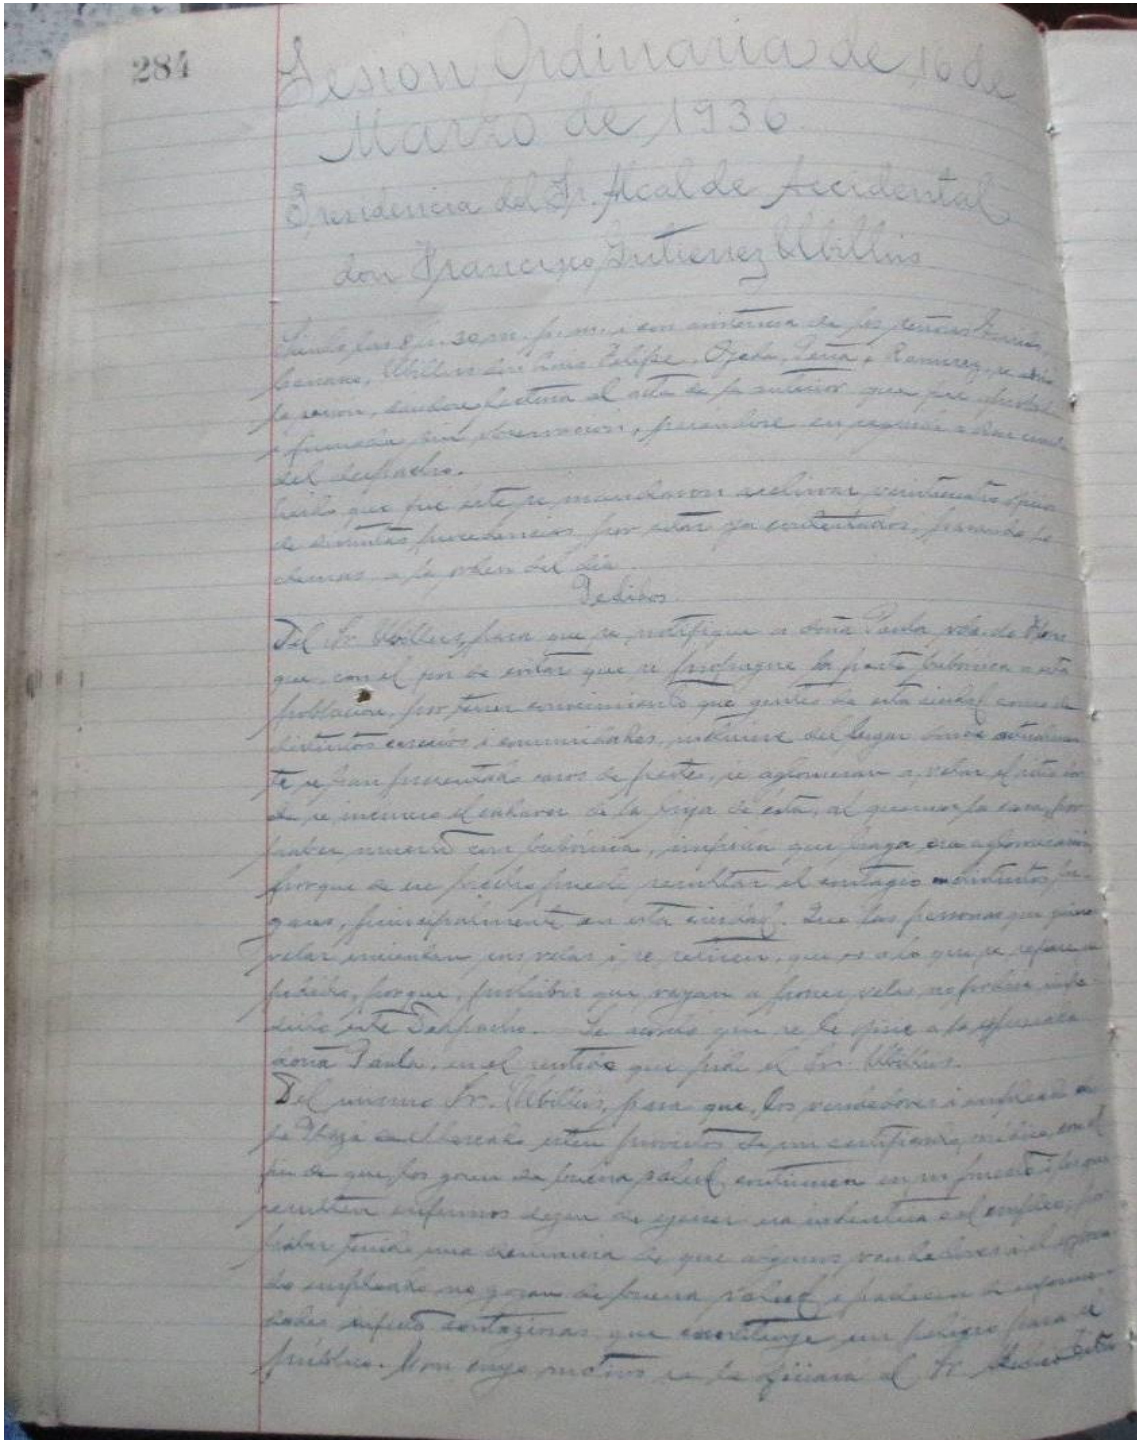 284
Sesion Ordinaria de 16 de
Marzo de 1936.
Presidencia del Sr. Alcalde Accidental
don Francisco Gutierrez Ubillus
Siendo las 8 h. 30 m. p. m. i con asistencia de los señores
Ubillus don Luis Felipe, Ojeda, Peña i Ramirez, se abrió
la sesion, dandose lectura al acta de la anterior que fue
i firmada sin observacion, pasandose en seguida a dar cuenta
del despacho.
Leido que fué éste se mandaron archivar veinticuatro oficios
de distintas procedencias por estar ya contestados, pasando lo
demas a la orden del dia.
Pedidos.
Del Sr. Ubillus, para que se notifique a doña Paula vda. de
que, con el fin de evitar que se propague la peste bubónica a esta
poblacion, por tener conocimiento que gentes de esta ciudad como de
distintos caserios i comunidades, inclusive del lugar donde actualmen-
te se han presentado casos de peste, se aglomeran a velar el sitio don-
de se incinero el cadaver de la hija de ésta, al quemar la casa, por
haber muerto con bubónica, impida que haga esa aglomeracion
porque de ese puede resultar el contagio a distintos lu-
gares, principalmente en esta ciudad. Que las personas que
velar enciendan sus velas i se retiren, que es a lo que se refiere su
pedido, porque, prohibir que vayan a poner velas no podria impe-
dirlo éste Despacho. Se acordó que se le oficie a la expresada
doña Paula, en el sentido que pide el Sr. Ubillus.
Del mismo Sr. Ubillus, para que, los vendedores i empleado de
la Plaza de Mercado esten provistos de un certificado médico, con el
fin de que, los gocen de buena salud, continuen en su puesto i los que
resulten enfermos dejen de ejercer esa industria o el empleo, por
haber tenido una denuncia de que algunos vendedores i el
do empleado no gozan de buena salud i padecen de enferme-
dades infecto contagiosas que constituye un peligro para el
público. Con cuyo motivo se le oficiará al Sr. Médico